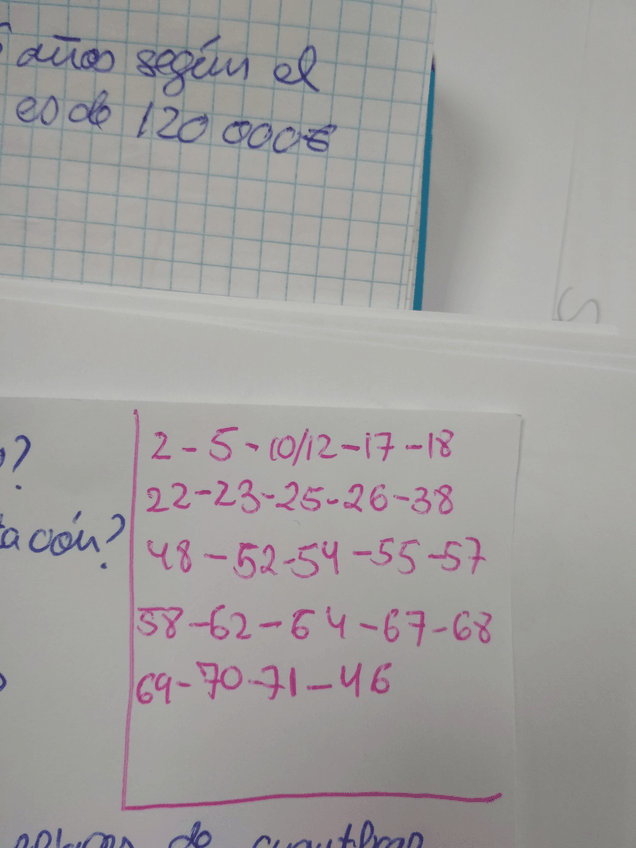 años según el
es de 120 000€
?
2 - 5 - 10/12 - 17 - 18
22 - 23 - 25 - 26 - 38
48 - 52 - 54 - 55 - 57
58 - 62 - 64 - 67 - 68
69 - 70 - 71 - 46
de